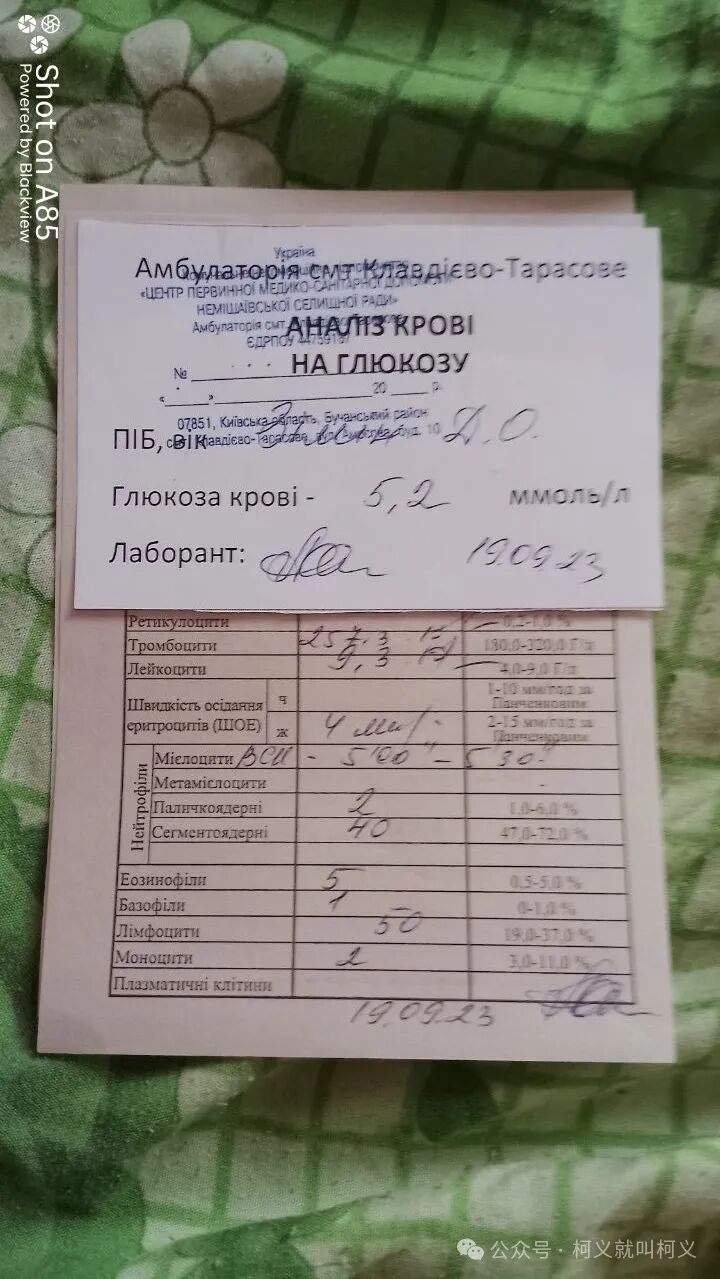 Shot on A85
Powered by Blackview
Україна
Амбулаторія смт Клавдієво-Тарасове
«ЦЕНТР ПЕРВИННОЇ МЕДИКО-САНІТАРНОЇ ДОПОМОГИ
НЕМІШАЇВСЬКОЇ СЕЛИЩНОЇ РАДИ»
Амбулаторія смт Клавдієво-Тарасове
АНАЛІЗ КРОВІ
ЄДРПОУ
НА ГЛЮКОЗУ
№
« » 20 р.
07851, Київська область, Бучанський район
смт Клавдієво-Тарасове, буд. 10
ПІБ, вік Д.О.
Глюкоза крові - 5,2 ммоль/л
Лаборант: 19.09.23
Ретикулоцити 0,2-1,0 %
Тромбоцити 257,3 180,0-320,0 Г/л
Лейкоцити 9,3 4,0-9,0 Г/л
Швидкість осідання еритроцитів (ШОЕ) ч 1-10 мм/год за Панченковим
ж 4 мм/ 2-15 мм/год за Панченковим
Нейтрофіли
Мієлоцити ВСК - 5'00" - 5'30"
Метамієлоцити -
Паличкоядерні 2 1,0-6,0 %
Сегментоядерні 40 47,0-72,0 %
Еозинофіли 5 0,5-5,0 %
Базофіли 1 0-1,0 %
Лімфоцити 50 19,0-37,0 %
Моноцити 2 3,0-11,0 %
Плазматичні клітини
19.09.23
公众号 · 柯义就叫柯义